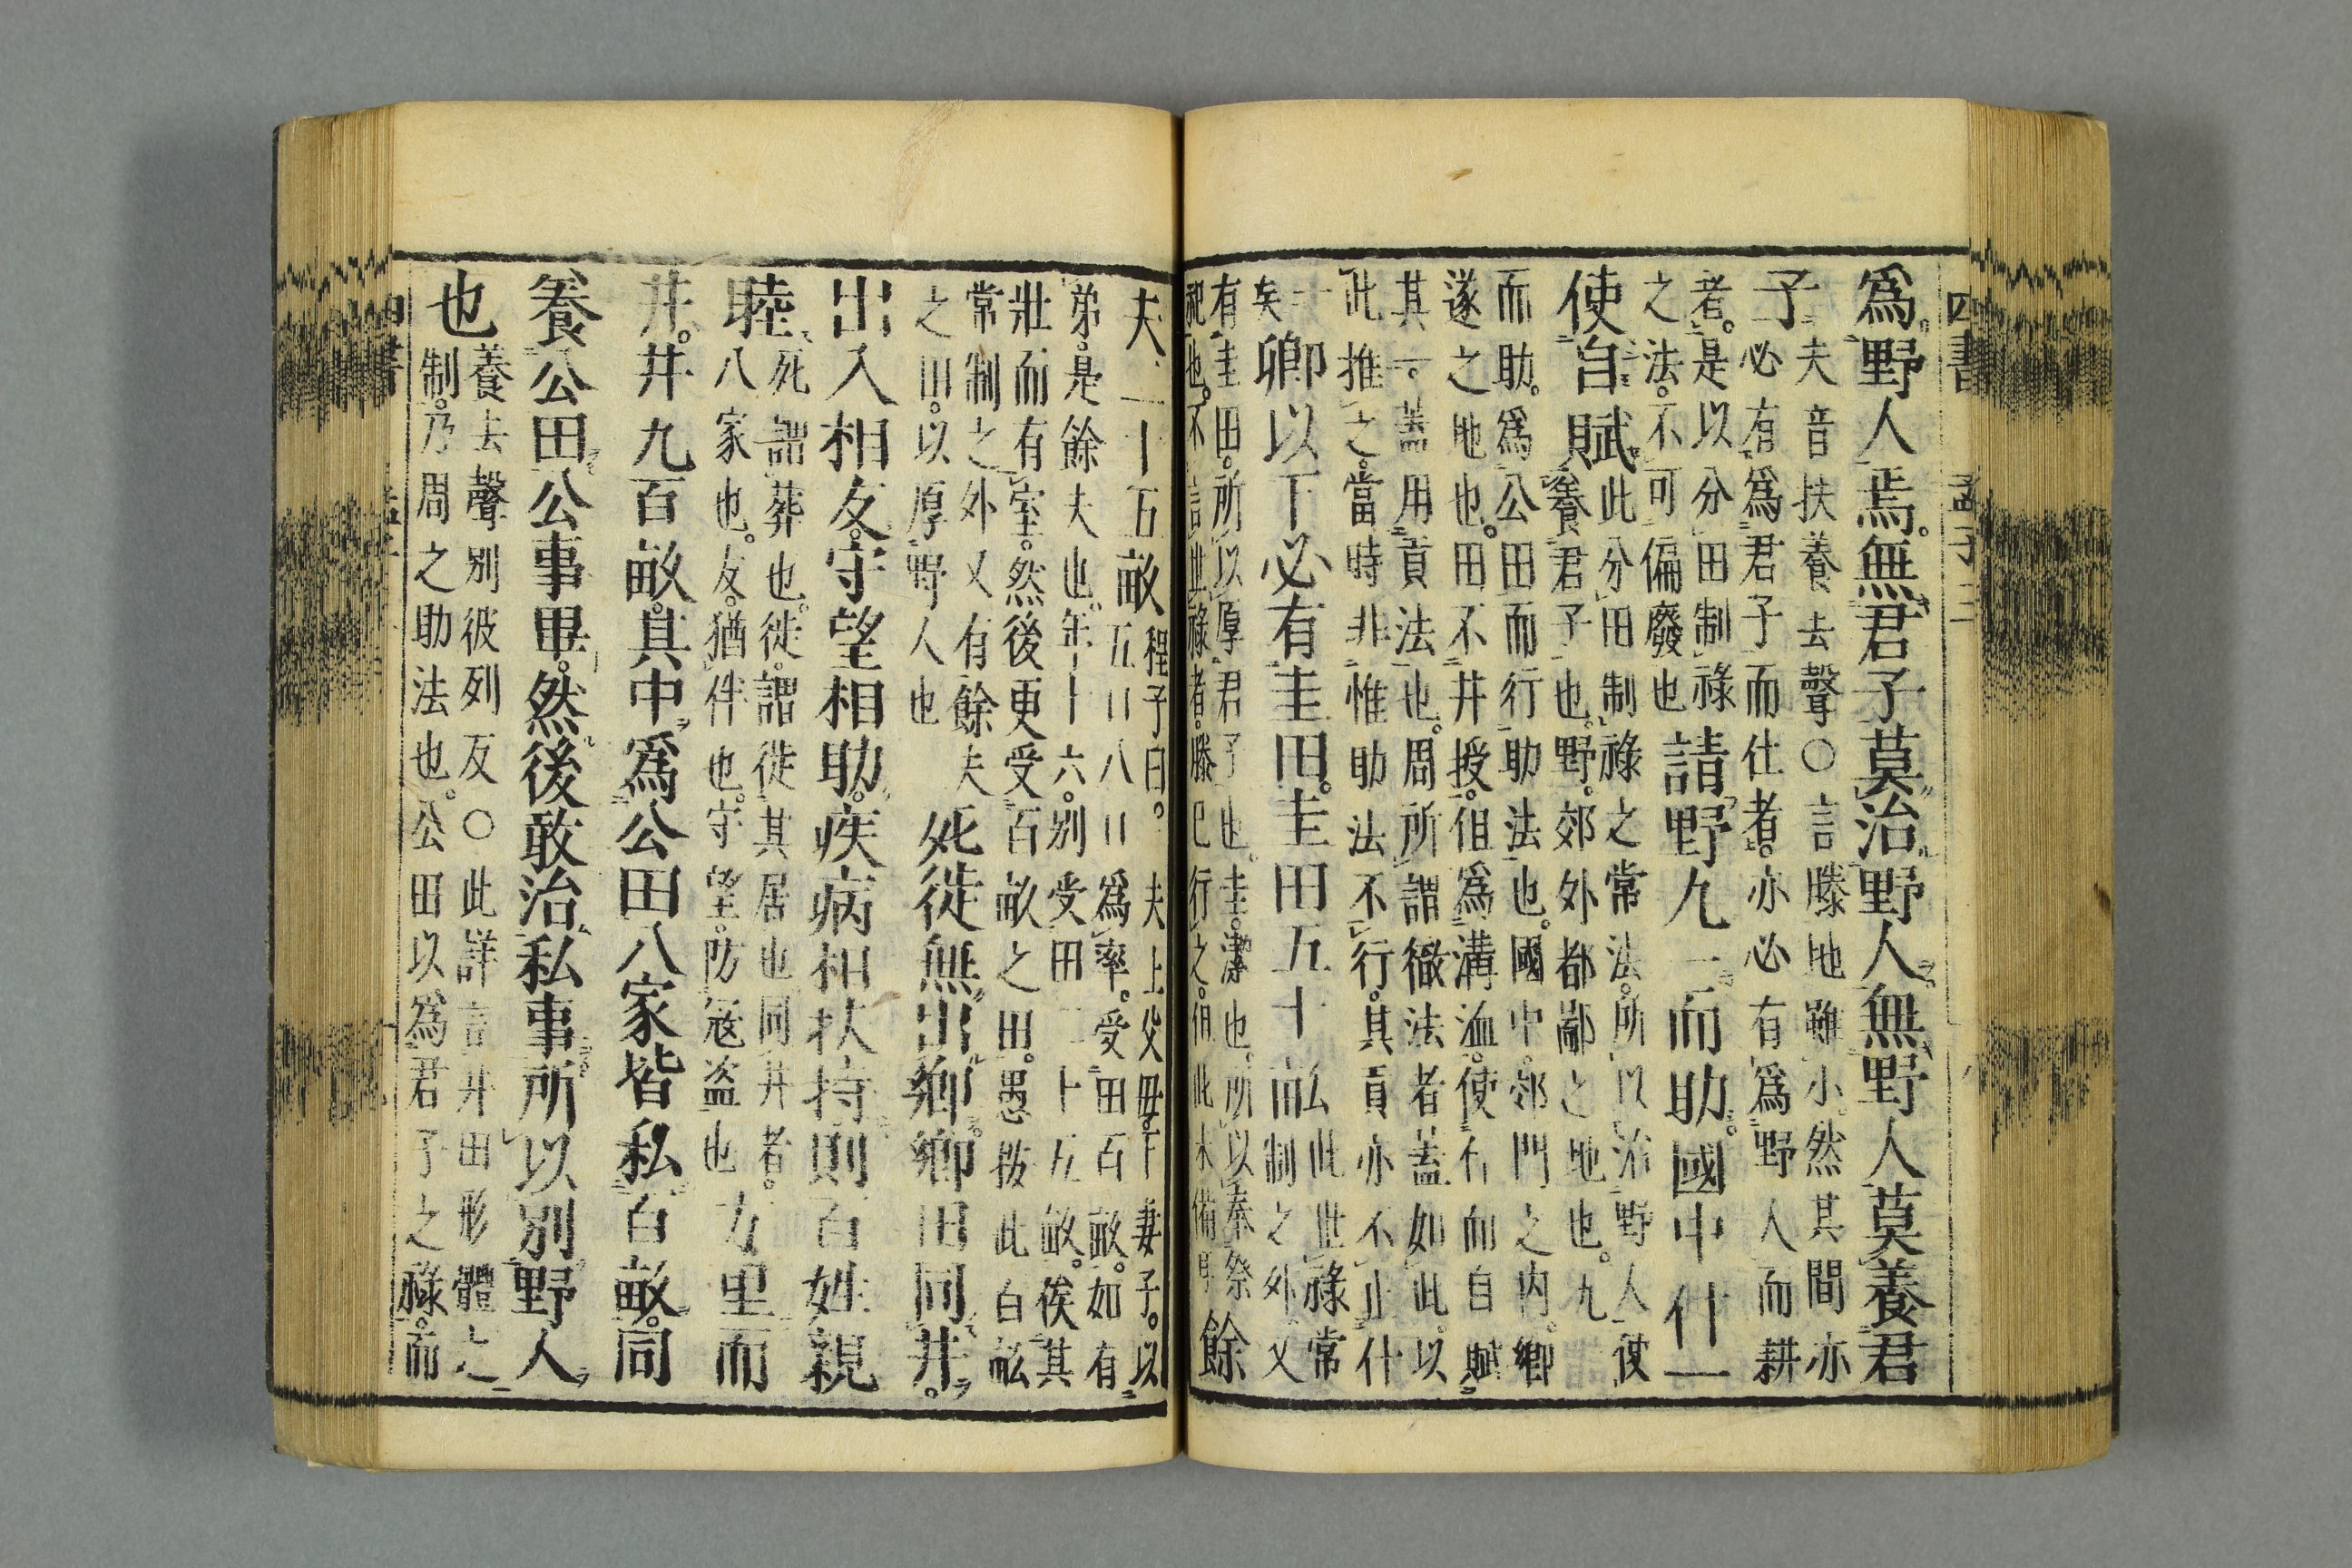 四書 孟子 三
爲野人焉。無君子莫治野人無野人莫養君
子
夫音扶養去聲○言滕地雖小。然其間亦
必有爲君子而仕者。亦必有爲野人而耕
者。是以分田制祿
之法。不可偏廢也
請野九一而助。國中什一
使自賦。
此分田制祿之常法。所以治野人使
養君子也。野。郊外都鄙之地也。九一
而助。爲公田而行助法也。國中。郊門之內。鄉
遂之地也。田不井授。但爲溝洫。使什而自賦
其一。蓋用貢法也。周所謂徹法者蓋如此。以
此推之。當時非惟助法不行。其貢亦不止什
一
矣
卿以下必有圭田。圭田五十畝
此世祿常
制之外又
有圭田。所以厚君子也。圭。潔也。所以奉祭
祀也。不言世祿者。滕已行之。但此未備耳
餘
夫二十五畝
程子曰。一夫上父母。下妻子。以
五口八口爲率。受田百畝。如有
弟。是餘夫也。年十六。別受田二十五畝。俟其
壯而有室。然後更受百畝之田。愚按此百畝
常制之外又有餘夫
之田。以厚野人也
死徙無出鄉。鄉田同井。
出入相友。守望相助。疾病相扶持。則百姓親
睦
死謂葬也。徙。謂徙其居也同井者。
八家也。友。猶伴也。守望。防寇盜也
方里而
井。井九百畝。其中爲公田八家皆私百畝。同
養公田。公事畢。然後敢治私事。所以別野人
也
養去聲別彼列反○此詳言井田形體之
制。乃周之助法也。公田以爲君子之祿。而
四書